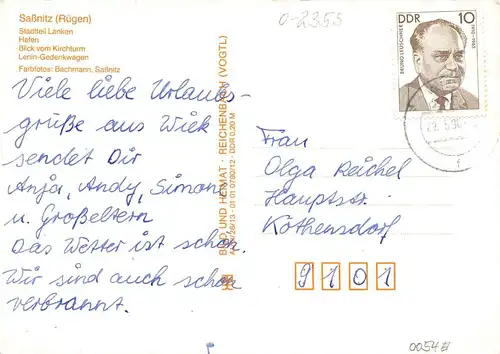 Saßnitz (Rügen)
Stadtteil Lanken
Hafen
Blick vom Kirchturm
Lenin-Gedenkwagen
Farbfotos: Bachmann, Saßnitz
0-2355
Viele liebe Urlaubs-
grüße aus Wiek
sendet Dir
Anja, Andy, Simone
u. Großeltern
Das Wetter ist schön.
Wir sind auch schon
verbrannt.
BILD UND HEIMAT · REICHENBACH (VOGTL)
01 01 0780/12 · DDR 0,20 M
DDR 10
BRUNO LEUSCHNER
1910-1965
Frau
Olga Reichel
Hauptstr.
Kothensdorf
9101
0054